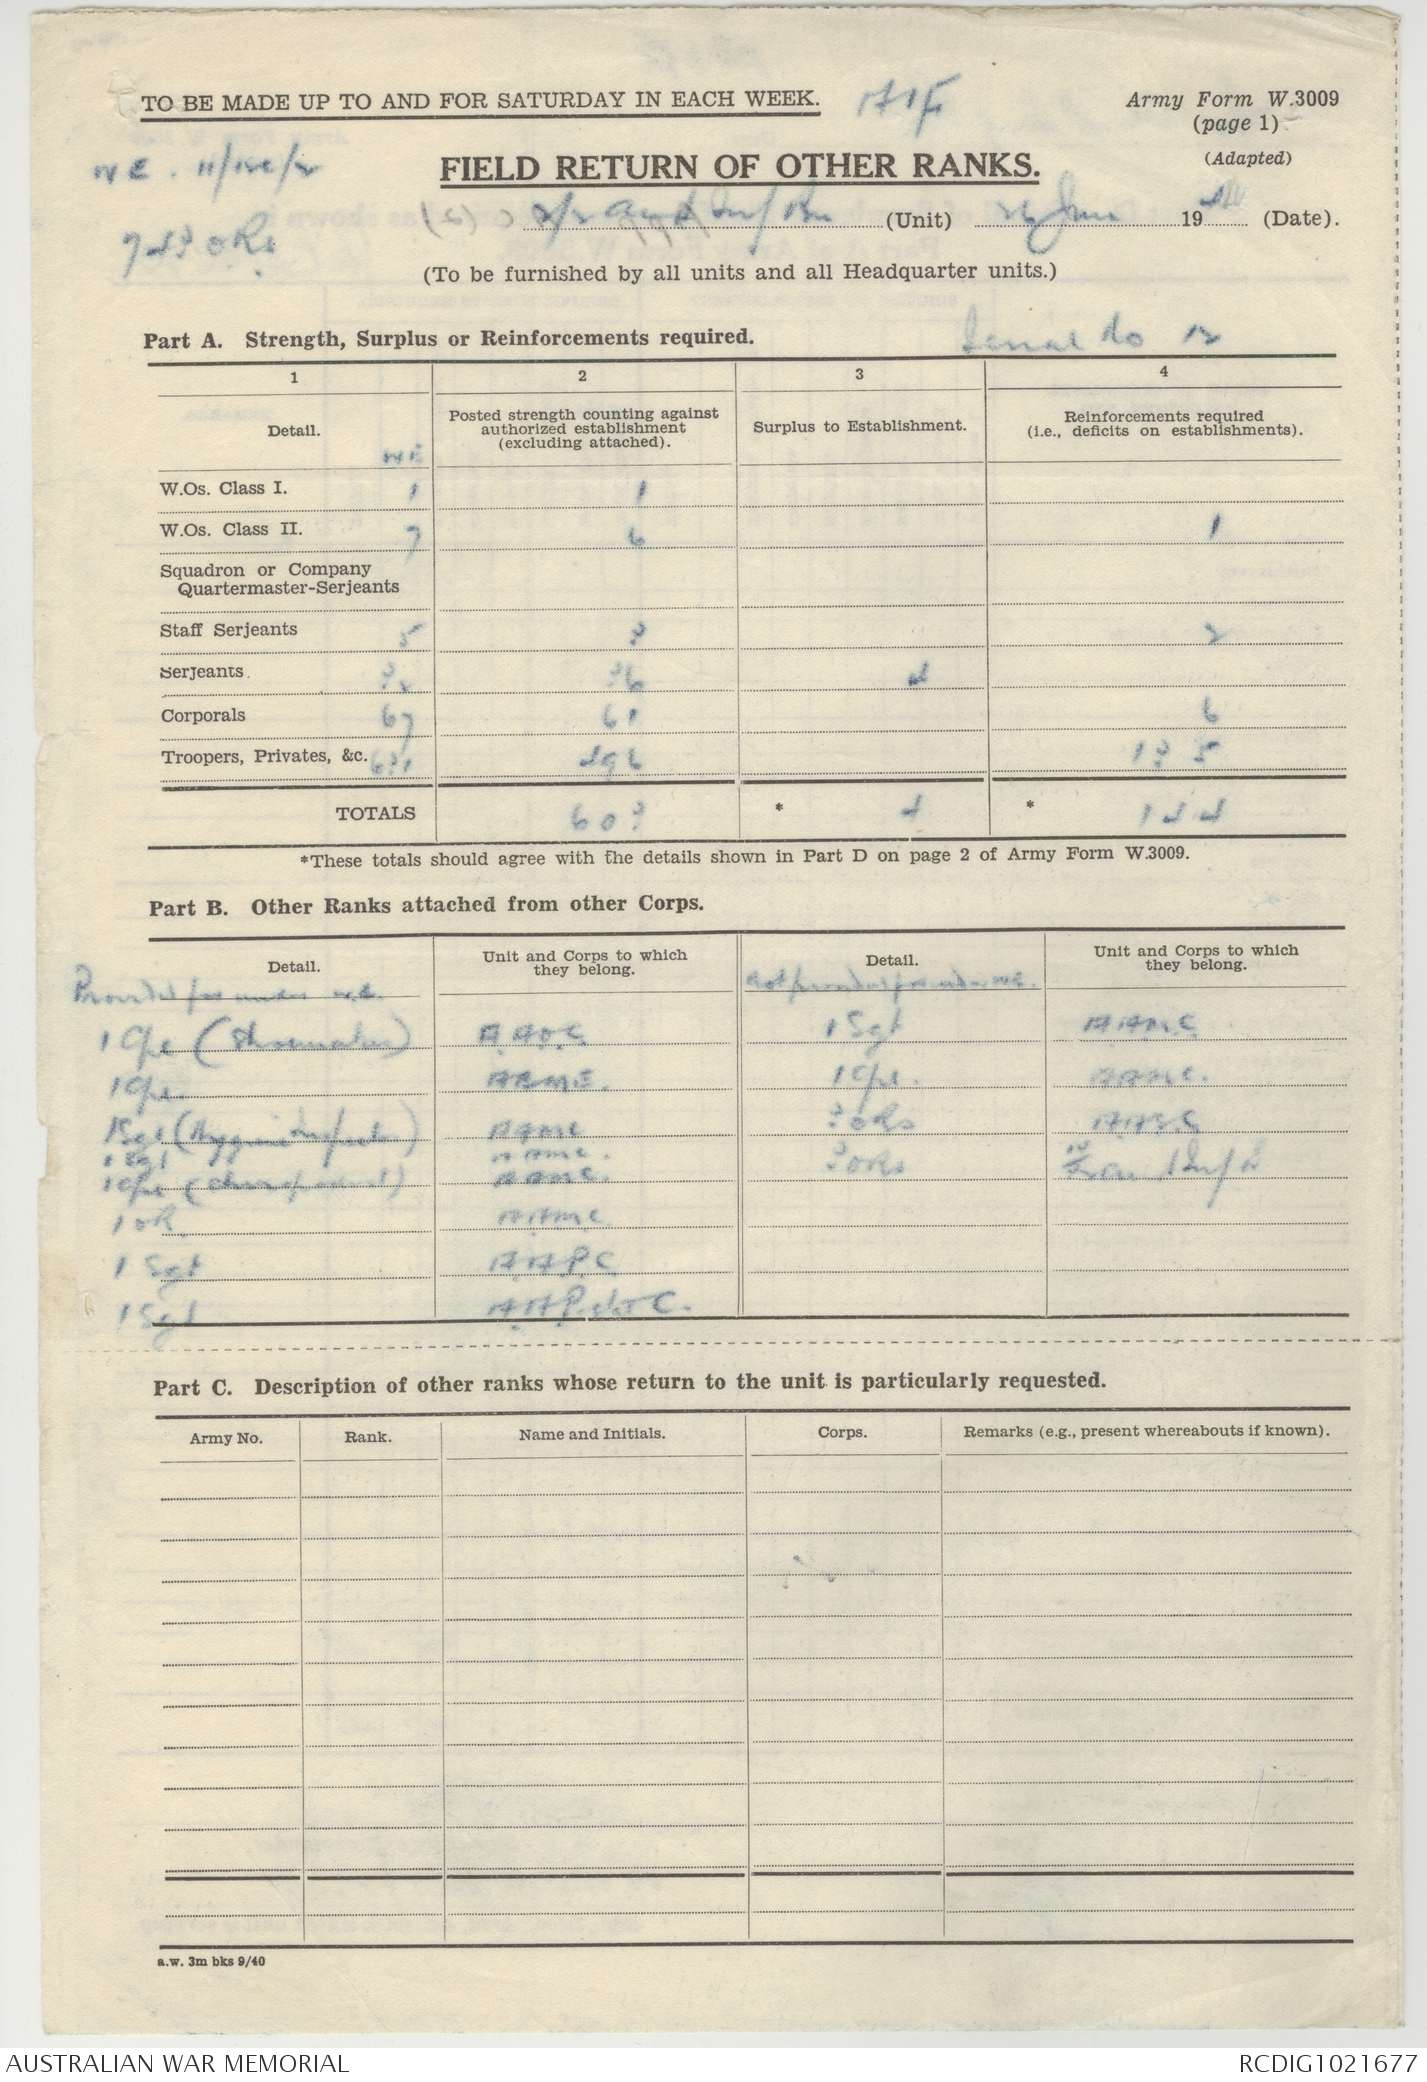 TO BE MADE UP TO AND FOR SATURDAY IN EACH WEEK.
AIF
Army Form W.3009
(page 1)
(Adapted)
FIELD RETURN OF OTHER RANKS.
(Unit) June 19 (Date).
743 ORs
(To be furnished by all units and all Headquarter units.)
Part A. Strength, Surplus or Reinforcements required.
Serial No 12
1 2 3 4
Detail. WE
Posted strength counting against authorized establishment (excluding attached).
Surplus to Establishment.
Reinforcements required (i.e., deficits on establishments).
W.Os. Class I. 1 1
W.Os. Class II. 7 6 1
Squadron or Company
Quartermaster-Serjeants
Staff Serjeants 5 3 2
Serjeants 32 36 4
Corporals 67 61 6
Troopers, Privates, &c. 631 496 135
TOTALS 603 * 4 * 144
*These totals should agree with the details shown in Part D on page 2 of Army Form W.3009.
Part B. Other Ranks attached from other Corps.
Detail. Unit and Corps to which they belong. Detail. Unit and Corps to which they belong.
Provided for under W.E. Not provided for under W.E.
1 Cpl (Shoemaker) AAOC 1 Sgt AAMC
1 Cpl AEME. 1 Cpl. AAMC.
1 Sgt (Hygiene Inspector) AAMC 3 ORs AASC
1 Sgt AAMC. 3 ORs
1 Cpl AAMC.
1 OR AAMC
1 Sgt AAPC
1 Sgt
Part C. Description of other ranks whose return to the unit is particularly requested.
Army No. Rank. Name and Initials. Corps. Remarks (e.g., present whereabouts if known).
a.w. 3m bks 9/40
AUSTRALIAN WAR MEMORIAL
RCDIG1021677